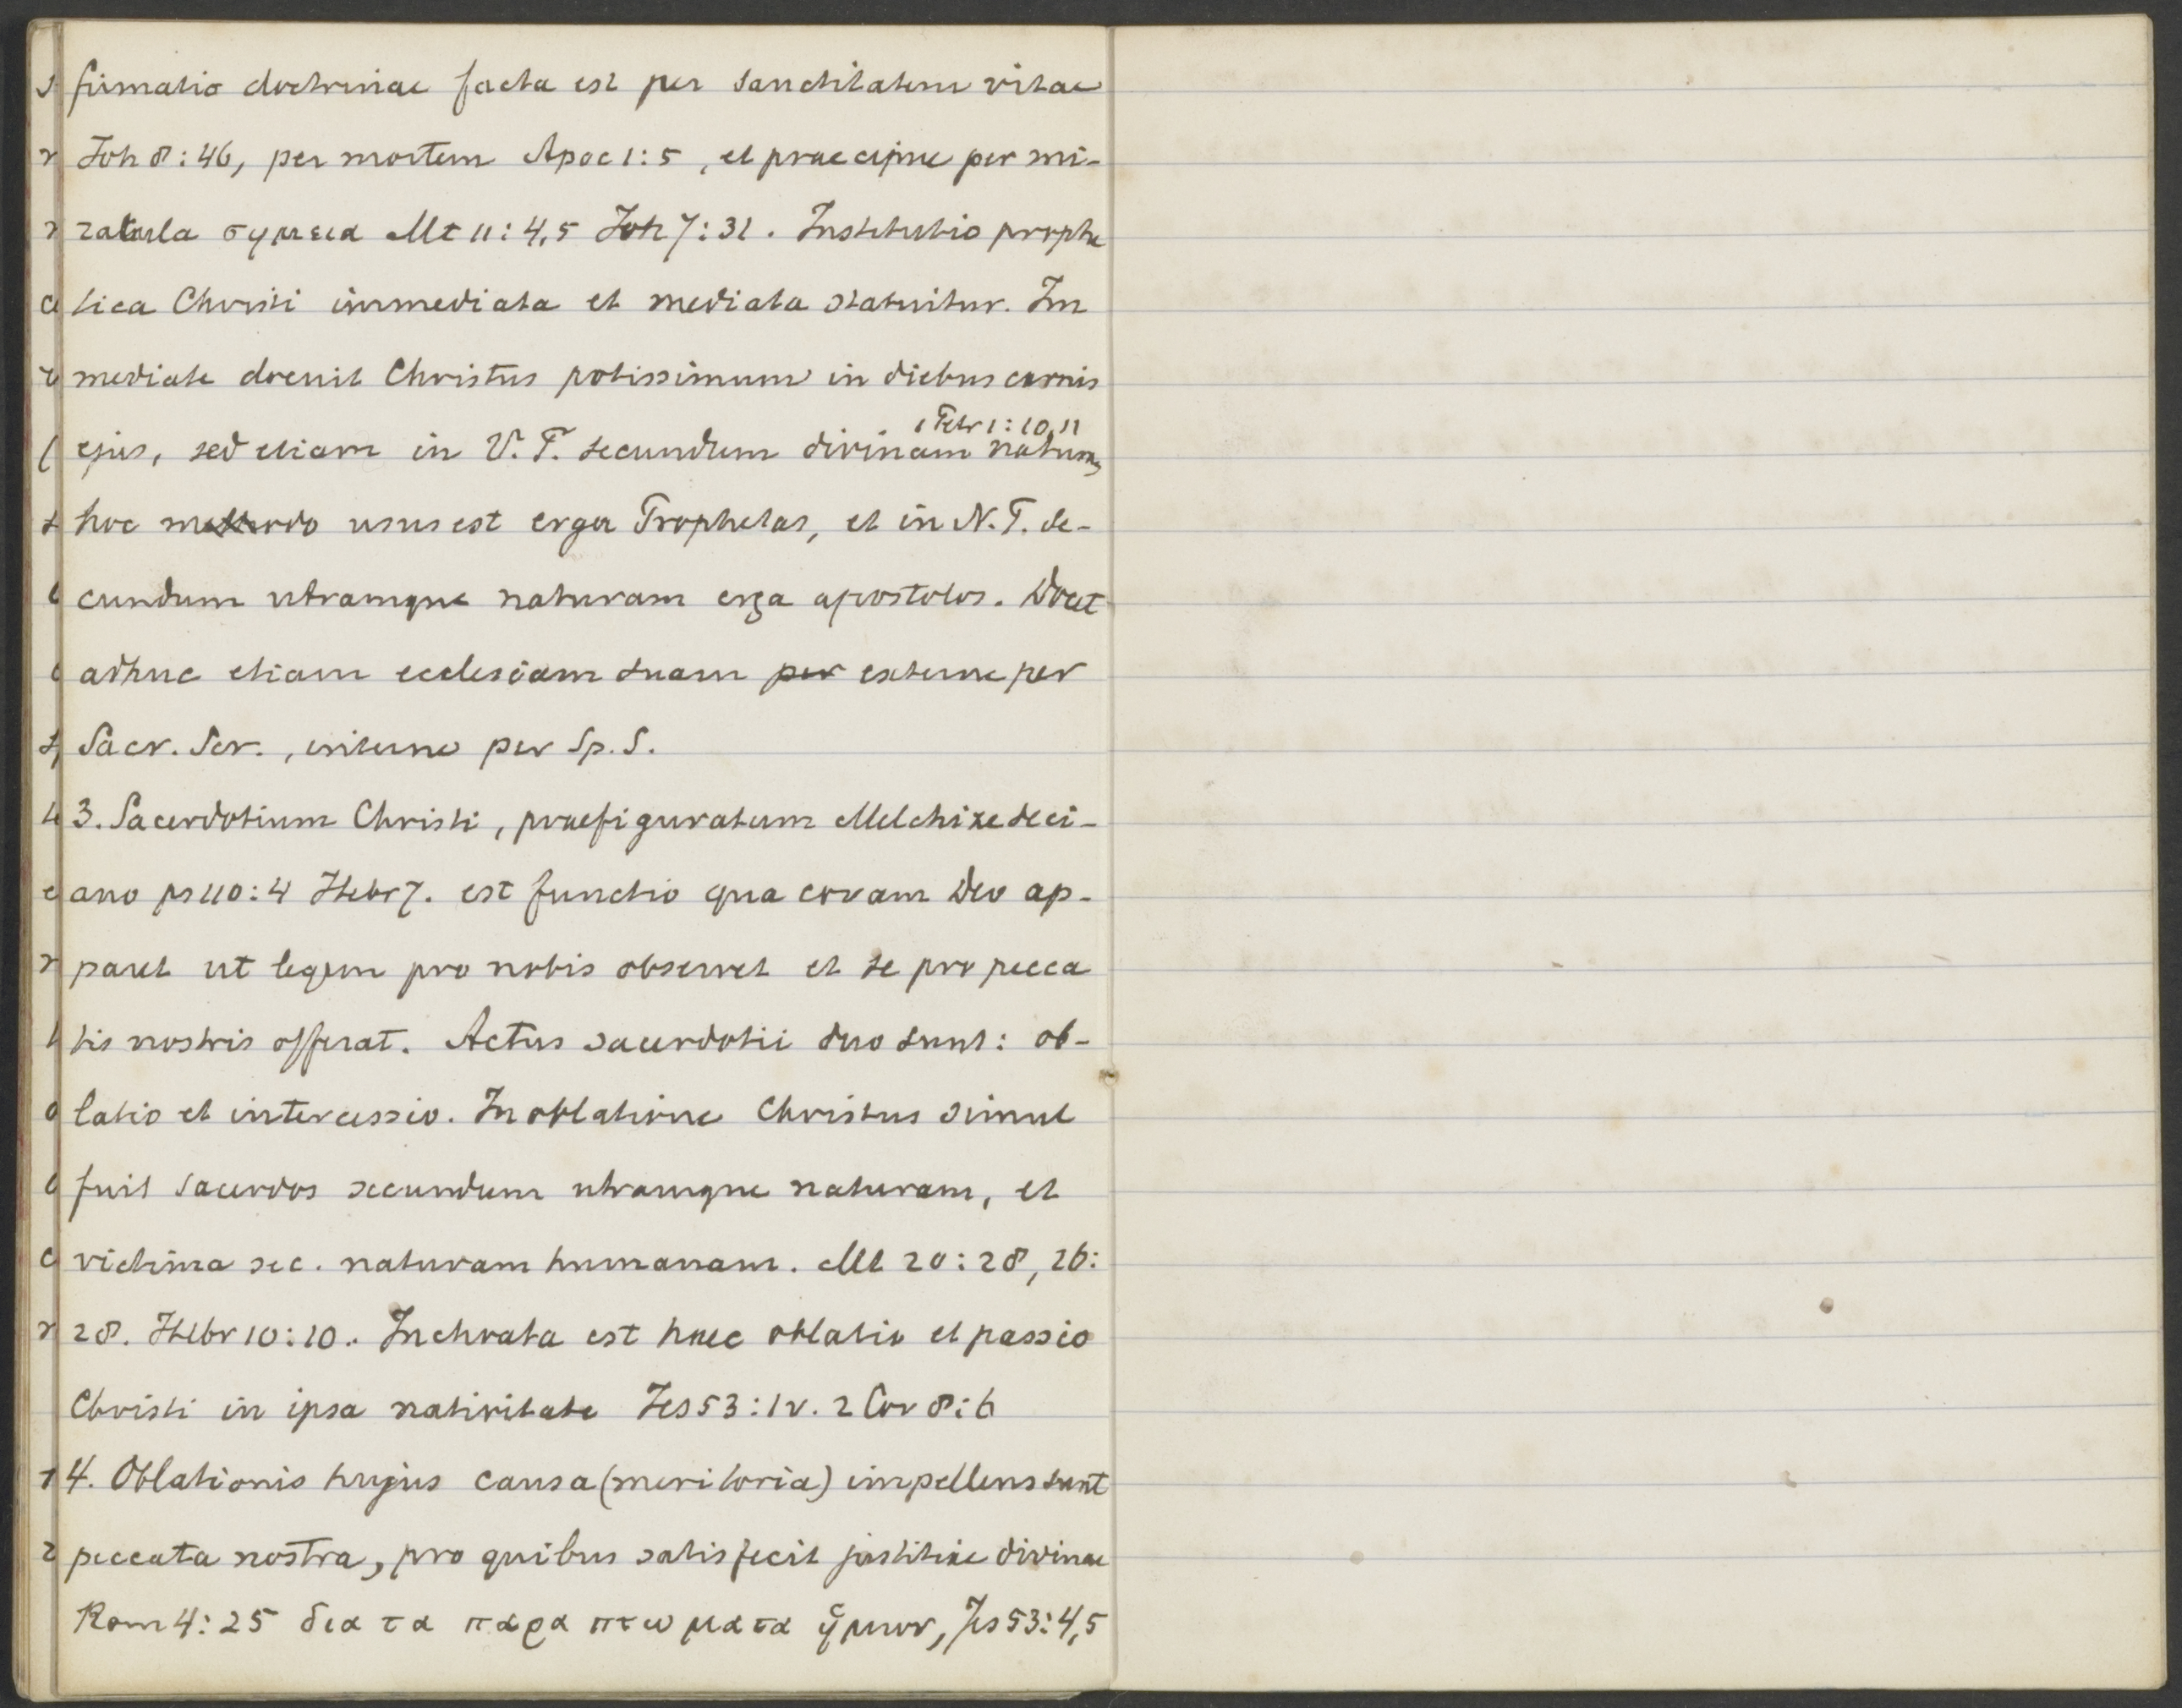 firmatio doctrinae facta est per sanctitatem vitae
Joh 8:46, per mortem Apoc 1:5, et praecipue per mi-
racula σημεια Mt 11:4,5 Joh 7:31. Institutio prophe
tica Christi immediata et mediata statuitur. Im
mediate docuit Christus potissimum in diebus carnis
1 Petr 1:10,11
ejus, sed etiam in V.T. secundum divinam natura,
hoc methodo usus est erga Prophetas, et in N.T. se-
cundum utramque naturam erga apostolos. Docet
adhuc etiam ecclesiam suam per externe per
Sacr. Scr., interne per Sp. S.
3. Sacerdotium Christi, praefiguratum Melchizedeci-
ano ps 110:4 Hebr 7. est functio qua coram Deo ap-
paret ut legem pro nobis observet et se pro pecca
tis nostris offerat. Actus sacerdotii duo sunt: ob-
latio et intercessio. In oblatione Christus simul
fuit sacerdos secundum utramque naturam, et
victima sec. naturam humanam. Mt 20:28, 26:
28. Hebr 10:10. Inchoata est haec oblatio et passio
Christi in ipsa nativitate Jes 53:1v. 2 Cor 8:6
4. Oblationis hujus causa (meritoria) impellens sunt
peccata nostra, pro quibus satisfecit justitiae divinae
Rom 4:25 δια τα παραπτωματα ἡμων, Jes 53:4,5